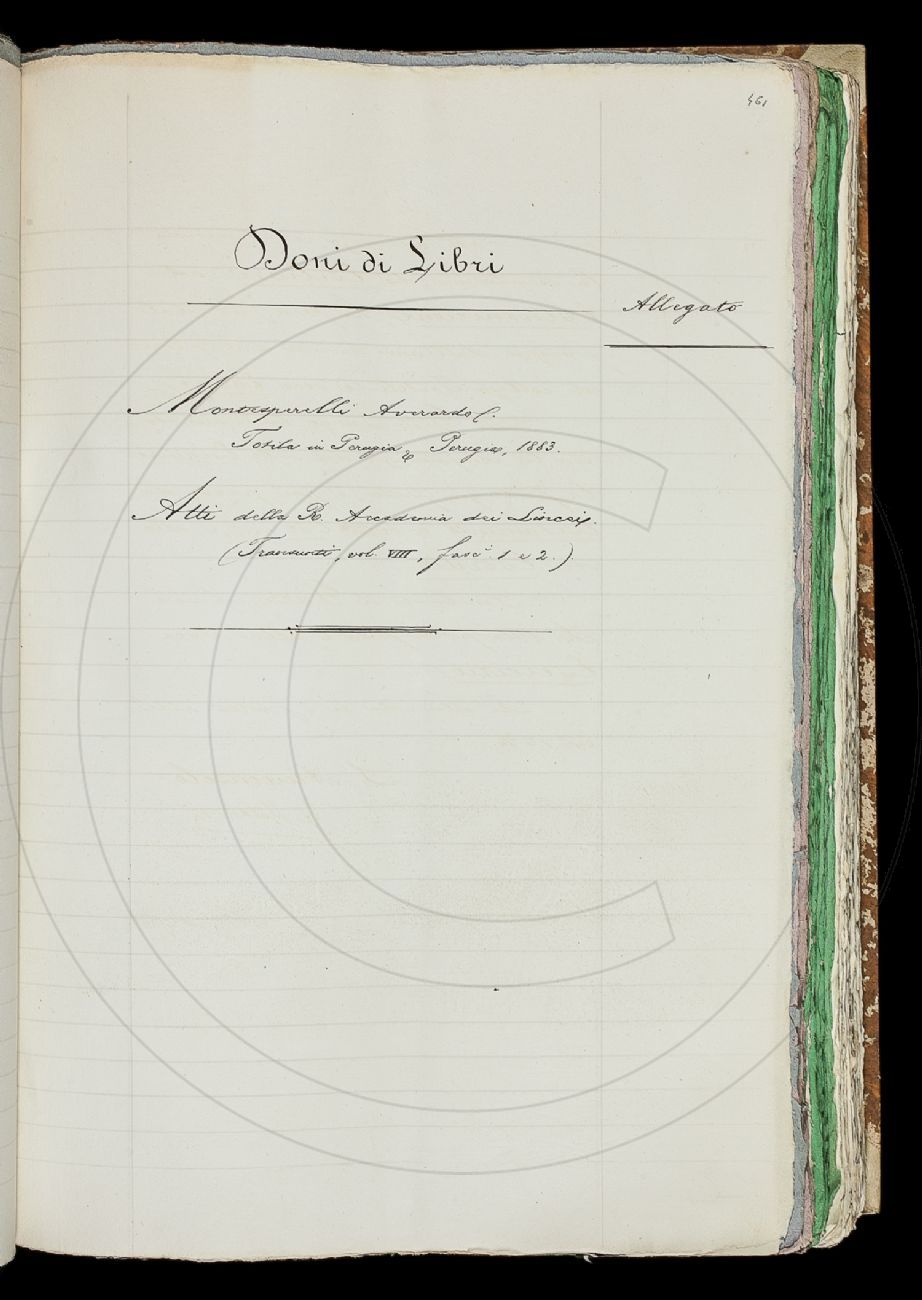 461
Doni di Libri
Allegato
Montesperelli Averardo C.
Totila in Perugia & Perugia, 1883.
Atti della R. Accademia dei Lincei.
(Transunti, vol. VIII, fasc.i 1 e 2.)